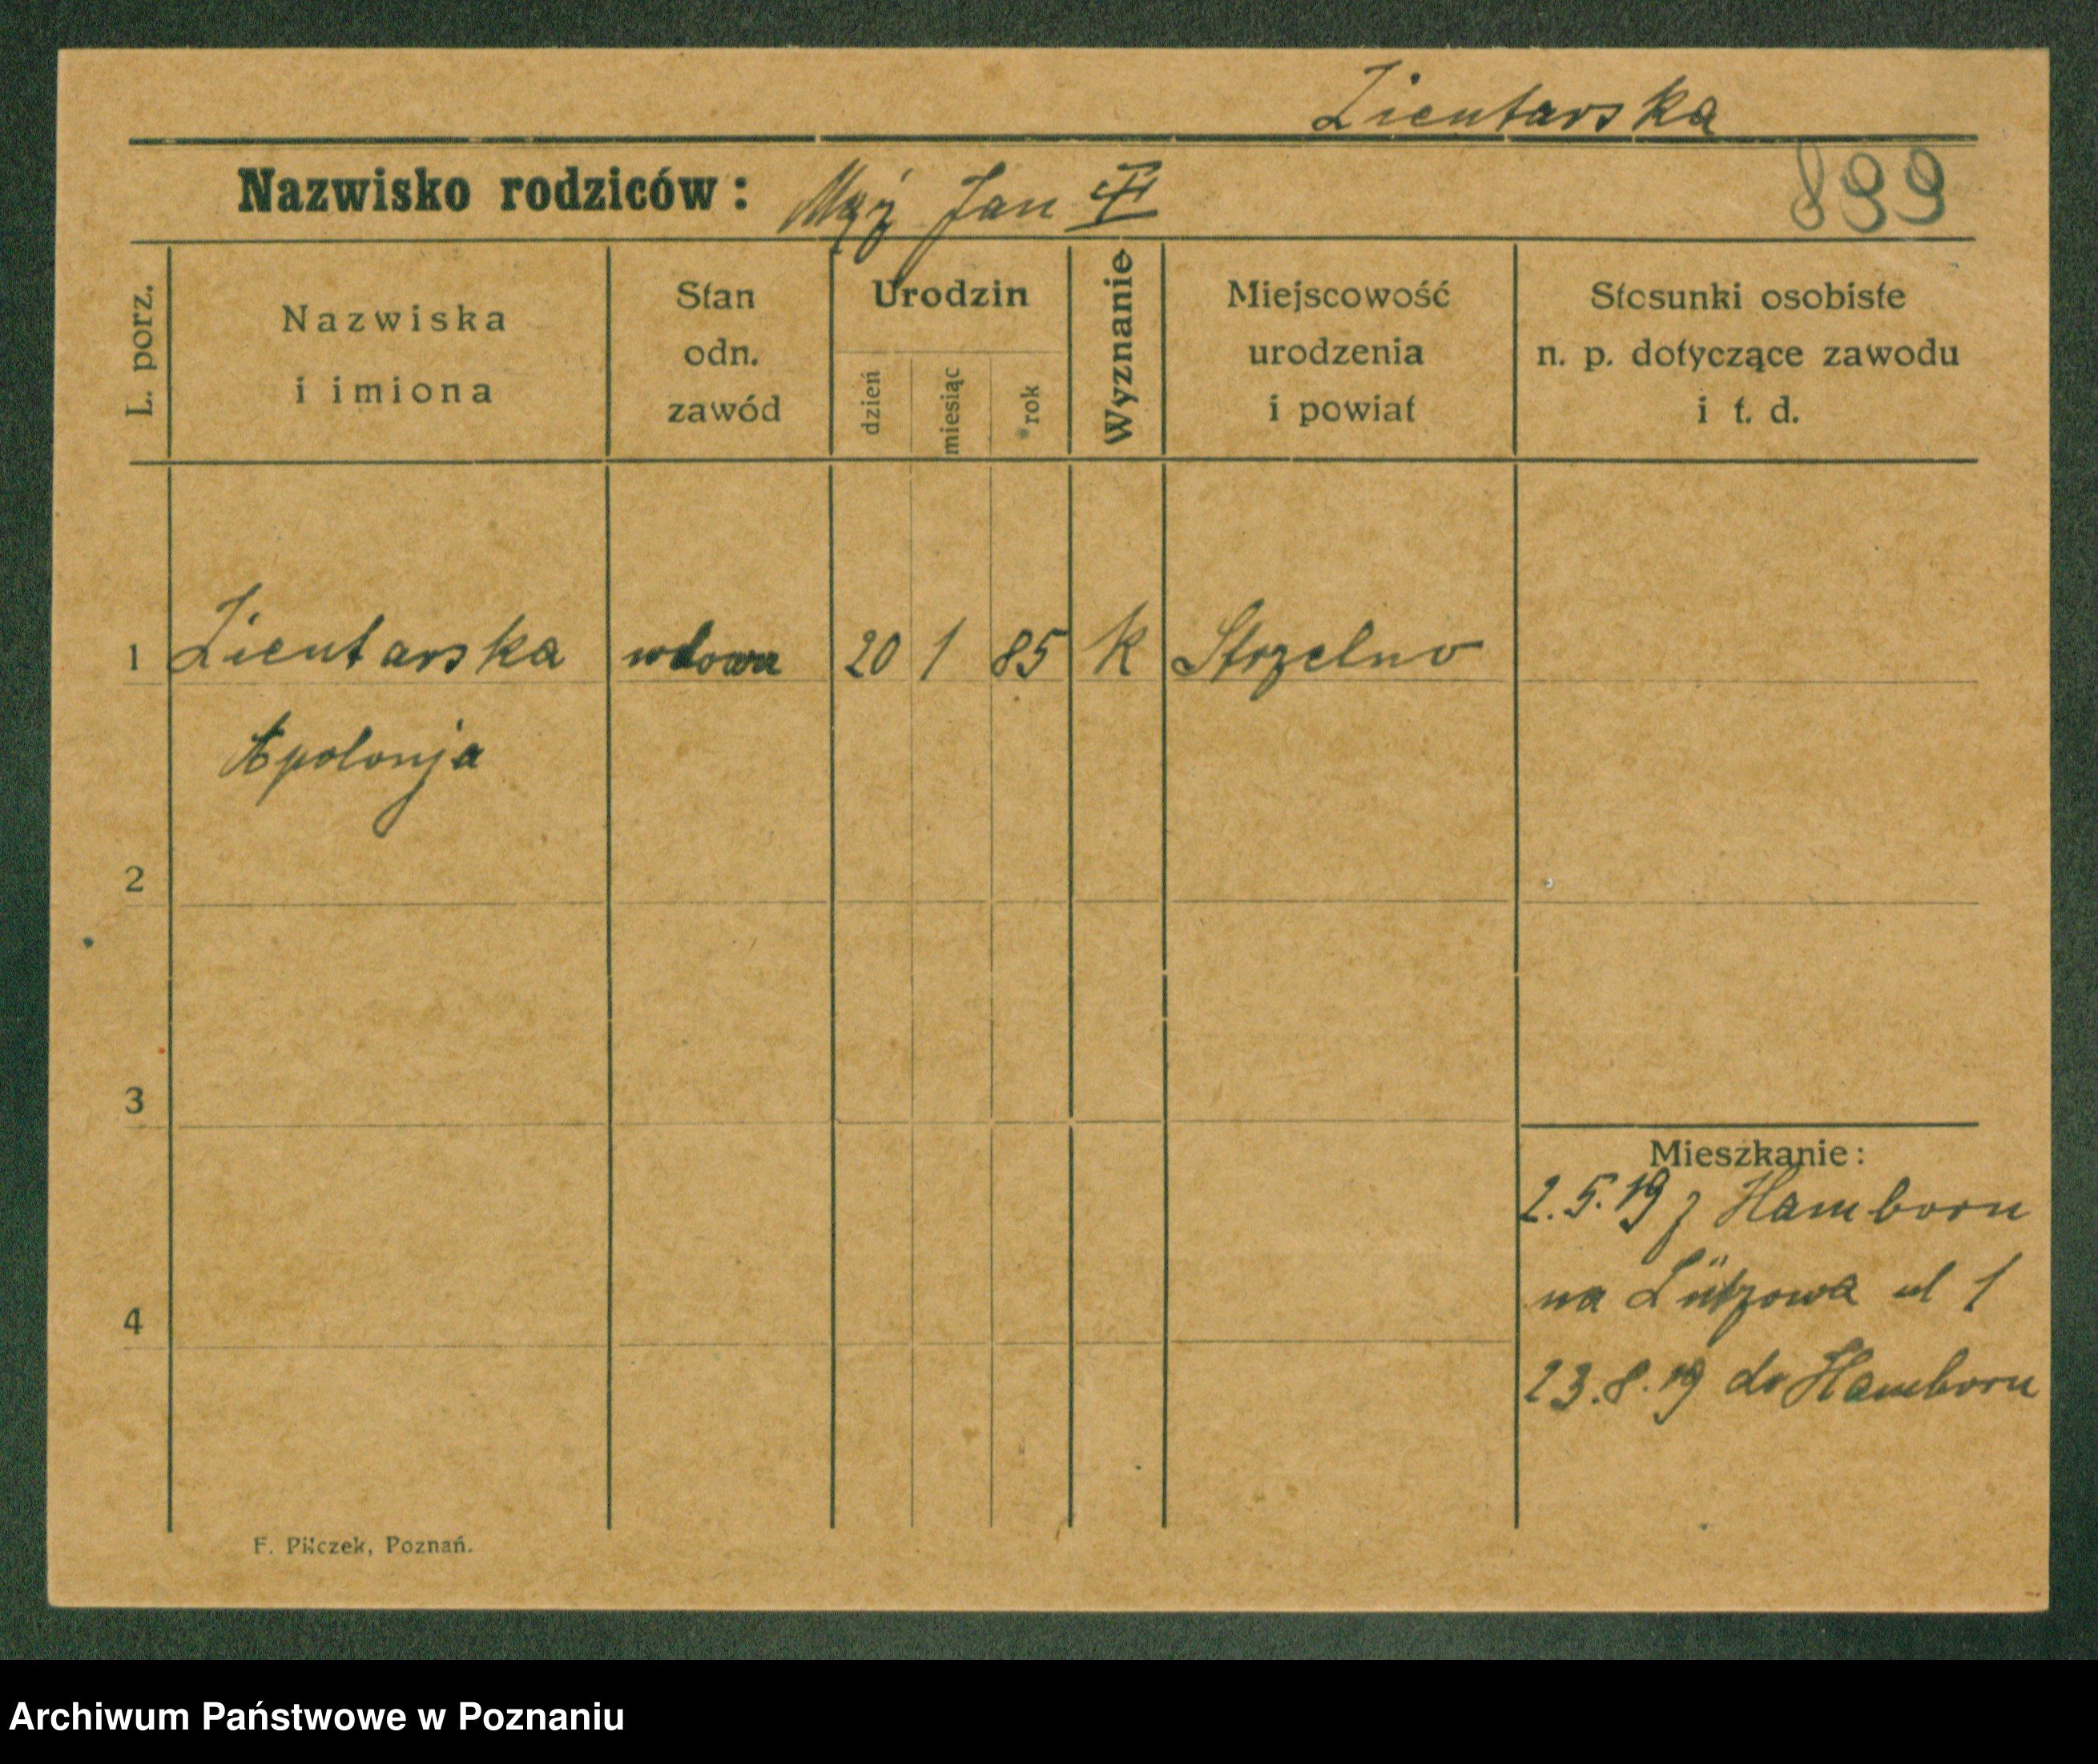 Zientarska
Nazwisko rodziców: Mąż Jan
899
L. porz.
Nazwiska
i imiona
Stan
odn.
zawód
Urodzin
dzień
miesiąc
rok
Wyznanie
Miejscowość
urodzenia
i powiat
Stosunki osobiste
n. p. dotyczące zawodu
i t. d.
1 Zientarska wdowa 20 1 85 k Strzelno
Apolonja
2
3
4
Mieszkanie:
2.5.19 z Hamborn
na Lützowa ul 1
23.8.19 do Hamborn
F. Pilczek, Poznań.
Archiwum Państwowe w Poznaniu